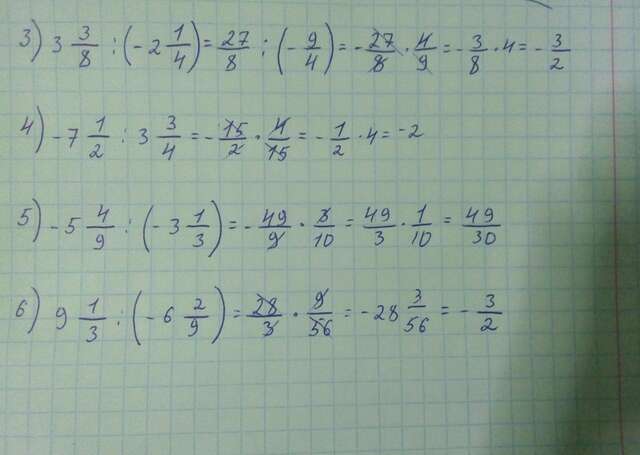 3) 3 3/8 : (-2 1/4) = 27/8 : (- 9/4) = - 27/8 · 4/9 = - 3/8 · 4 = - 3/2
4) -7 1/2 : 3 3/4 = - 15/2 · 4/15 = - 1/2 · 4 = -2
5) -5 4/9 : (-3 1/3) = - 49/9 · 3/10 = 49/3 · 1/10 = 49/30
6) 9 1/3 : (-6 2/9) = 28/3 · 9/56 = -28 3/56 = - 3/2